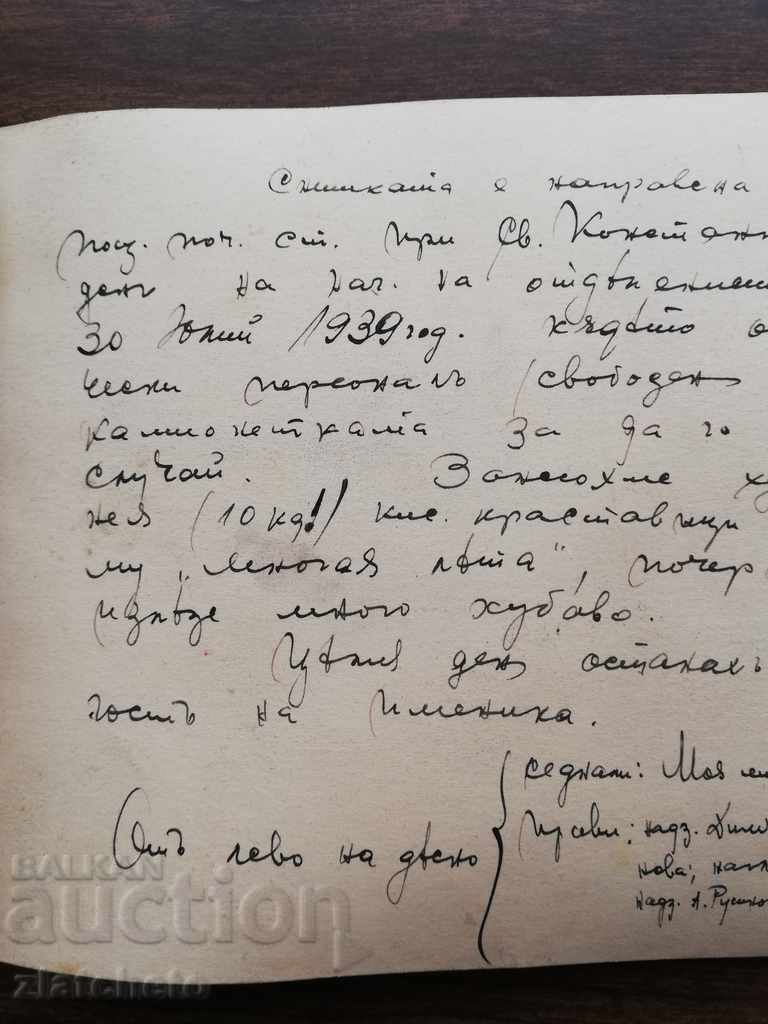 Снимката е направена
пощ. поч. ст. при Св. Констан
ден на нач. на отдѣлениет
30 Юний 1939 год. кѫдето
чески персоналъ свободен
камионетката за да го
случай. Занесохме
(10 кд!) кис. краставици
му „Многая лѣта“, почер
излѣзе много хубаво.
Цѣлия ден останахъ
гостъ на именика.
седнали: Моя
Отъ лево на дѣсно
прави: надз. Дими
нова;
надз. А. Русино
BALKAN
auction
zlatcheto